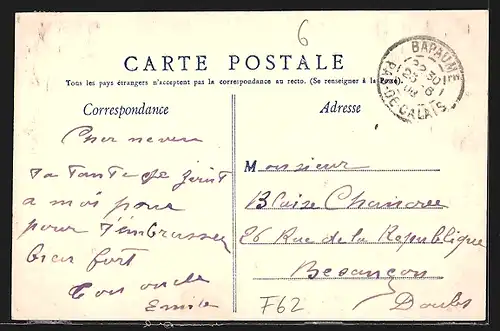 6
CARTE POSTALE
Tous les pays étrangers n'acceptent pas la correspondance au recto. (Se renseigner à la Poste)
BAPAUME
PAS-DE-CALAIS
Correspondance
Cher neveu
ta tante se joint
a moi pour
pour t'embrasser
bien fort
Ton oncle
Emile
Adresse
Monsieur
Blaise
26 Rue de la Republique
Besançon
Doubs
F62